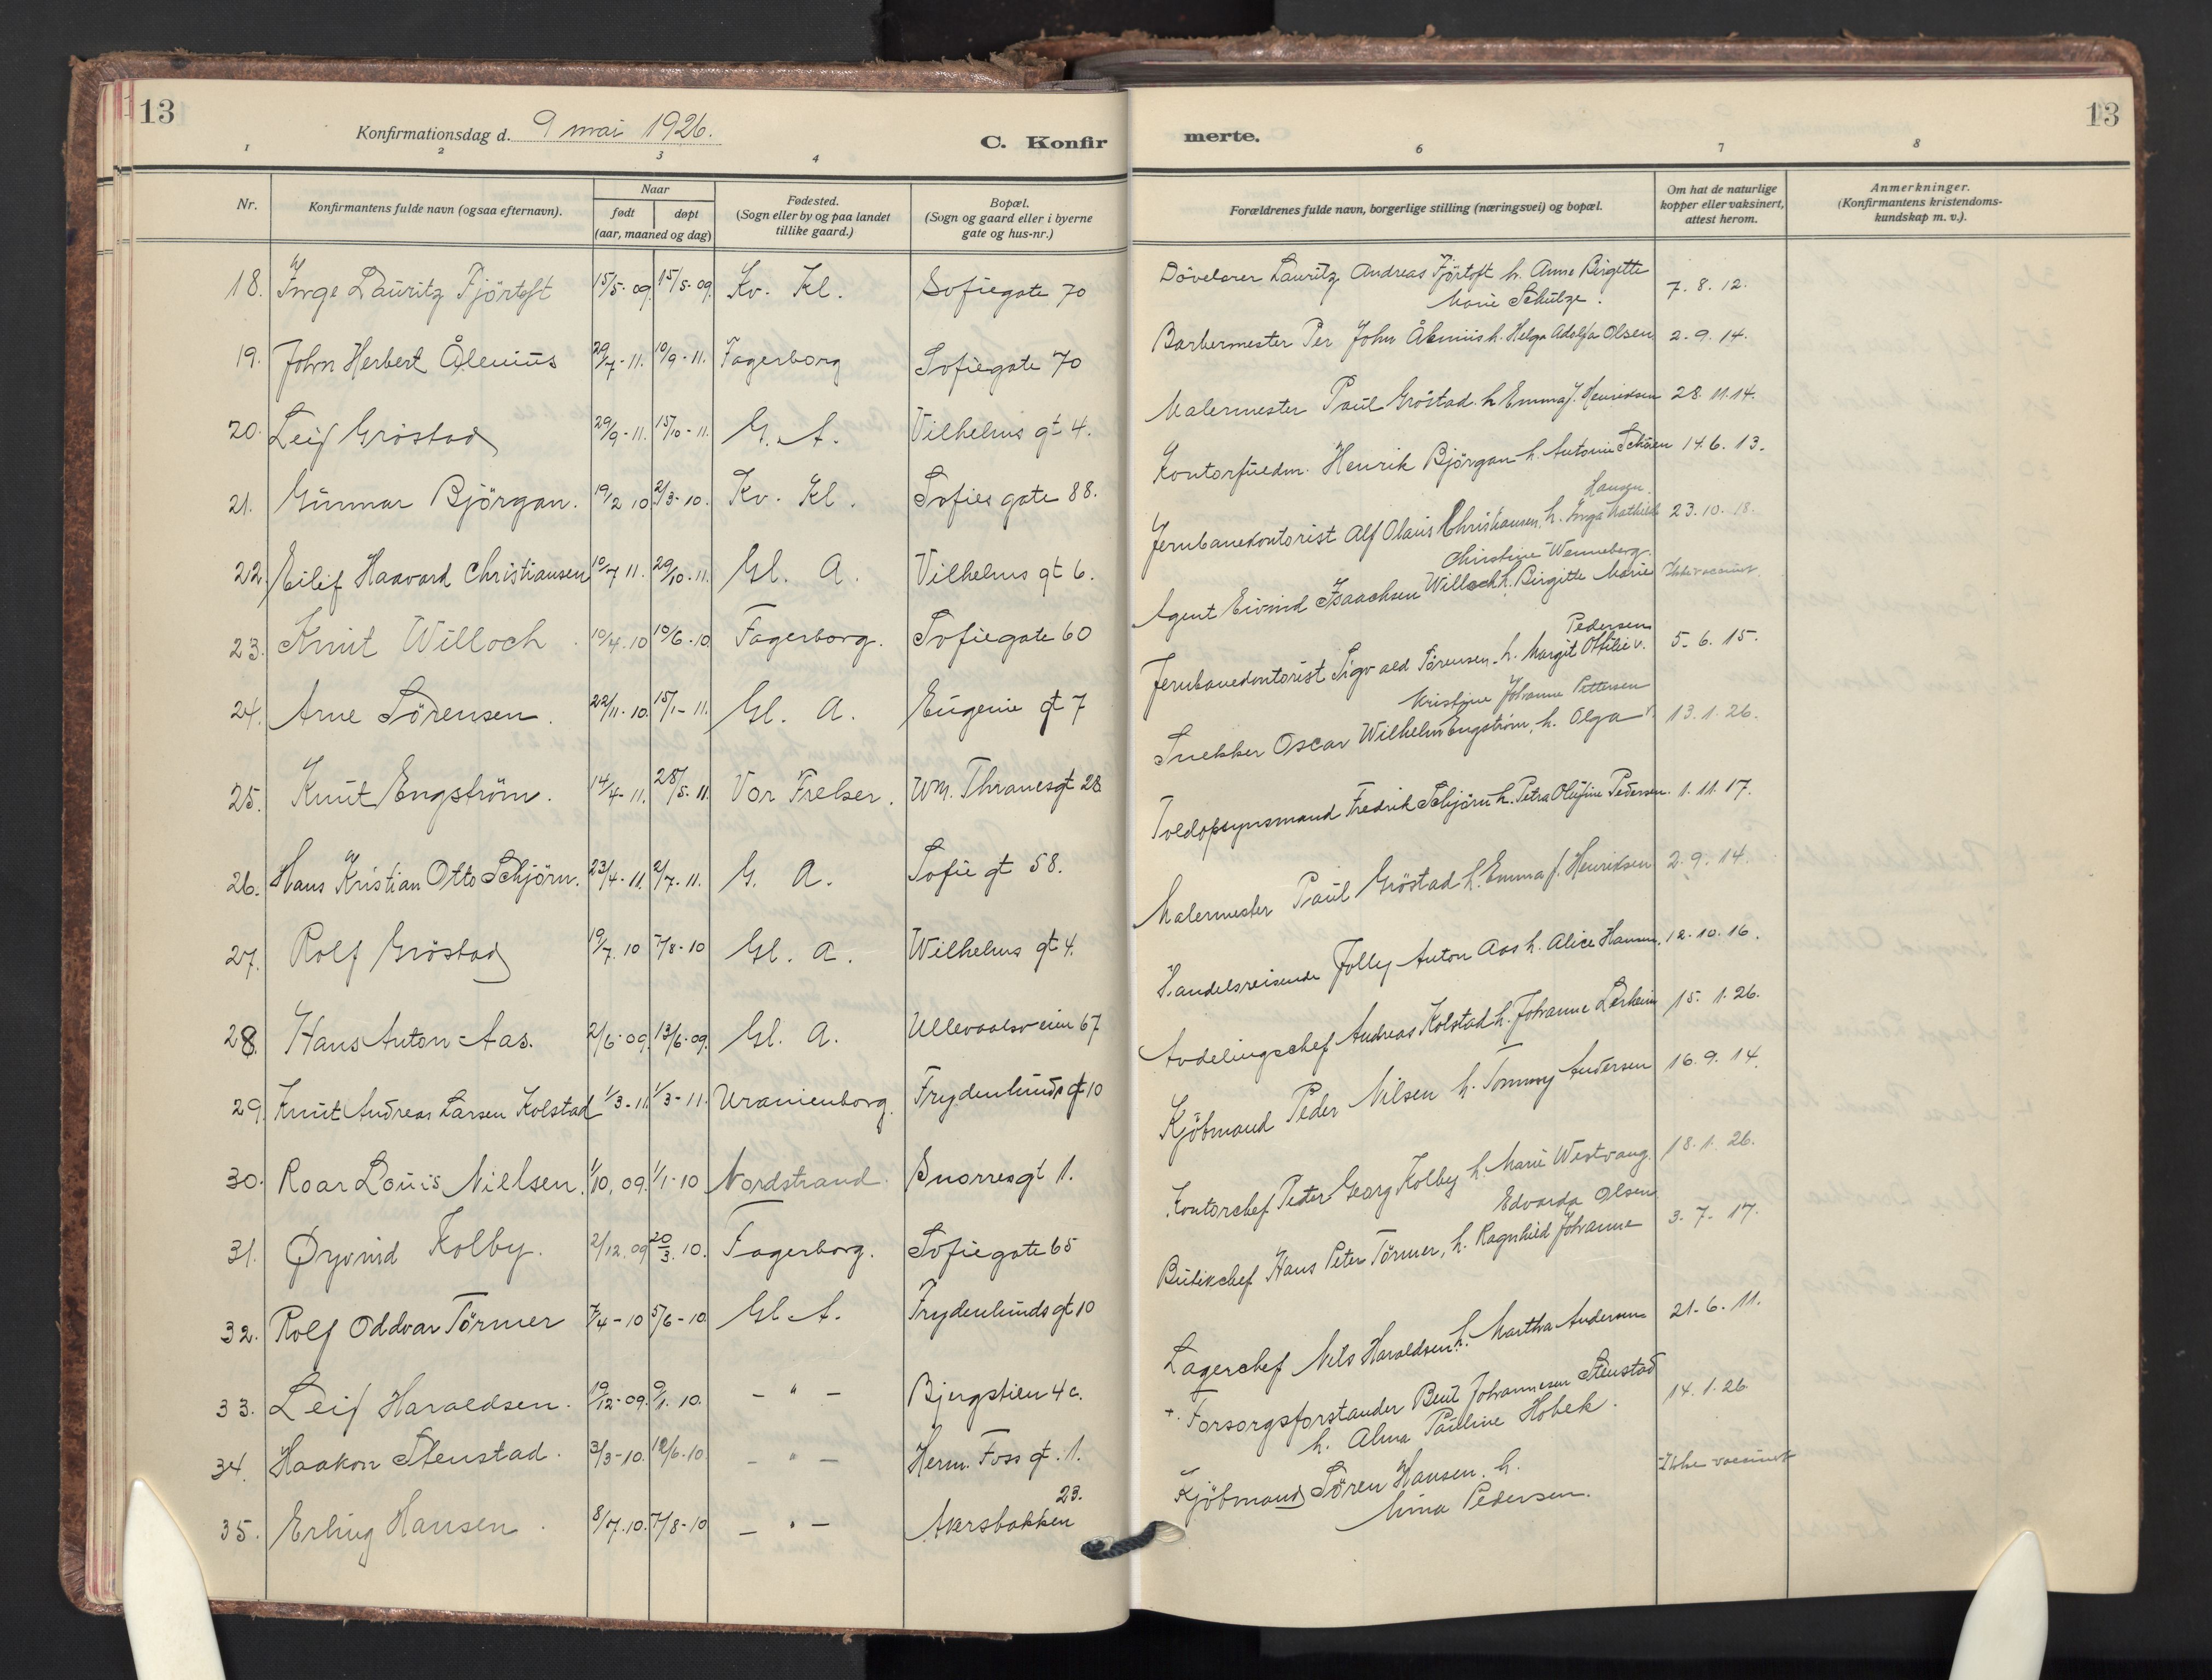 13
Konfirmationsdag d. 9 mai 1926.
C. Konfir
merte.
13
1 2 3 4 6 7 8
Nr.
Konfirmantens fulde navn (ogsaa efternavn).
Naar
født
døpt
(aar, maaned og dag)
Fødested.
(Sogn eller by og paa landet
tillike gaard.)
Bopæl.
(Sogn og gaard eller i byerne
gate og hus-nr.)
Forældrenes fulde navn, borgerlige stilling (næringsvei) og bopæl.
Om hat de naturlige
kopper eller vaksinert,
attest herom.
Anmerkninger.
(Konfirmantens kristendoms-
kundskap m. v.).
18. Inge Lauritz Fjörtoft 15/5-09. 15/5-09. Kv. Kl. Sofiegate 70
Dövelærer Lauritz Andreas Fjörtoft h. Anne Birgitte
Marie Schulze. 7. 8. 12.
19. John Herbert Ålenius 29/7-11. 10/9-11. Fagerborg Sofiegate 70
Barbermester Per John Ålenius h. Helga Adolfa Olsen 2. 9. 14.
20. Leif Gröstad 29/9-11. 15/10-11. G. A. Vilhelms gt 4.
Malermester Paul Gröstad h. Emma J. Henriksen 28. 11. 14.
21. Gunnar Björgan. 19/2 10 2/3-10. Kv. Kl. Sofies gate 88.
Kontorfuldm. Henrik Björgan h. Antonie Schöien 14. 6. 13.
22. Eilif Haavard Christiansen 10/7 11. 29/10-11. Gl. A. Vilhelms gt 6.
Hansen.
Jernbanekontorist Alf Olaus Christiansen, h. Inga Mathilde 23. 10. 18.
23. Knut Willoch. 10/4.10 10/6-10 Fagerborg. Sofiegate 60
Christine Wenneberg.
Agent Eivind Isaachsen Willoch h. Birgitte Marie Ikke vaccinert
24. Arne Sörensen. 22/11-10. 15/1-11. Gl. A. Eugenie gt 7
Pedersen
Jernbanekontorist Sigvald Sörensen. h. Margit Ottilie v. 5-6. 15.
25. Knut Engström. 14/4-11. 28/5-11. Vor Frelser. M. Thranesgt 28
Kristine Johanne Pettersen
Snekker Oscar Wilhelm Engström, h. Olga v. 13. 1. 26.
26. Hans Kristian Otto Schjörn. 23/4-11. 2/7-11. G. A. Sofie gt 58.
Toldopsynsmand Fredrik Schjörn h. Petra Olufine Pedersen. 1. 11. 17.
27. Rolf Gröstad 19/7.10 7/8-10 Gl. A. Wilhelms gt 4.
Malermester Paul Gröstad h. Emma J. Henriksen 2. 9. 14.
28. Hans Anton Aas. 2/6-09. 13/6-09. Gl. A. Ullevaalsveien 67
Handelsreisende Jolly Anton Aas h. Alice Hansen. 12. 10. 16.
29. Knut Andreas Larsen Kolstad 1/3-11. 1/3-11. Uranienborg. Frydenlunds gt 10
Avdelingschef Andreas Kolstad h. Johanne Lerheim 15. 1. 26.
30. Roar Louis Nielsen. 1/10.09. 1/1-10 Nordstrand. Snorresgt 1.
Kjöbmand Peder Nilsen h. Tommy Andersen 16. 9. 14.
31. Øyvind Kolby. 2/12.09 20/3.10. Fagerborg. Sofiegate 65
Kontorchef Peter Georg Kolby h. Marie Westvang. 18. 1. 26.
32. Rolf Oddvar Törmer 7/4-10 5/6-10 Gl. A. Frydenlunds gt 10
Edvarda Olsen
Butikchef Hans Peter Törmer, h. Ragnhild Johanne 3. 7. 17.
33. Leif Haraldsen. 19/12-09. 9/1.10. - " - Bjergstien 4c.
Lagerchef Nils Haraldsen h. Martha Andersen 21. 6. 11.
34. Haakon Stenstad. 3/3-10. 12/6-10. - " - Herm. Foss gt. 1.
+. Forsorgsforstander Bent Johannesen Stenstad
h. Alma Pauline Hobek. 14. 1. 26.
35. Erling Hansen. 8/7.10. 7/8-10 - " - Akersbakken 23.
Kjöbmand Sören Hansen. h.
Mina Pedersen. Ikke vaccinert